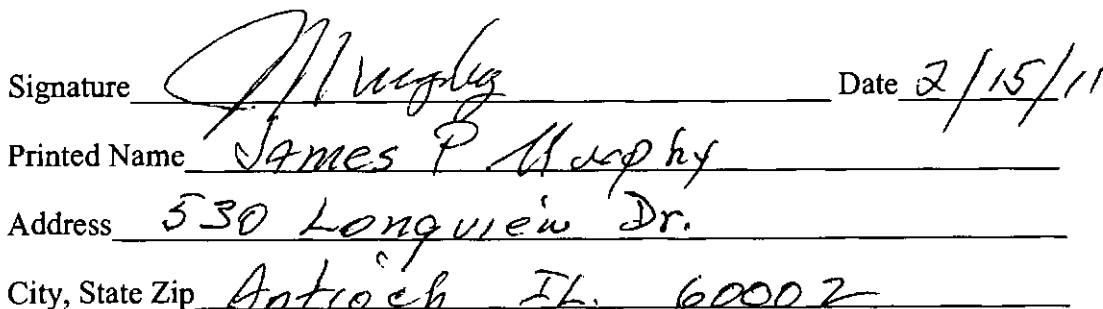 Signature Murphy Date 2/15/11
Printed Name James P Murphy
Address 530 Longview Dr.
City, State Zip Antioch IL. 60002